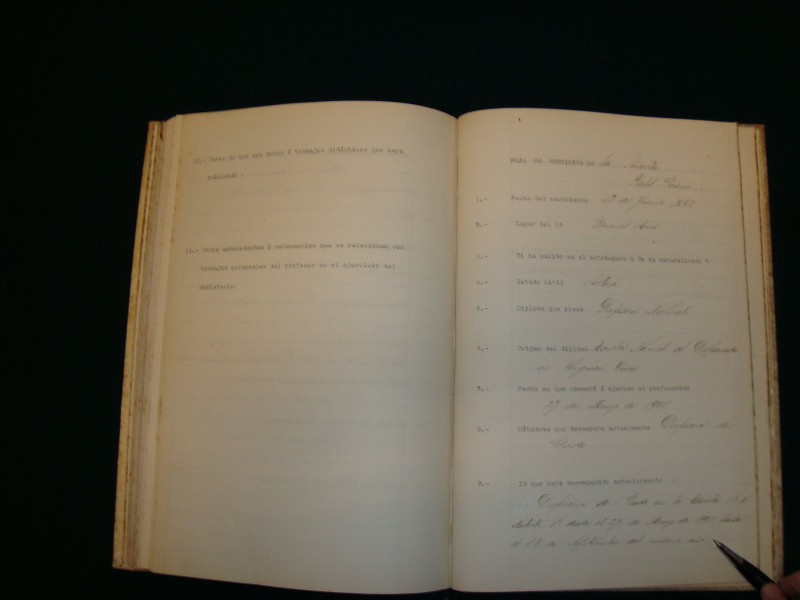 13.- Obra de que sea autor ó trabajos didácticos que haya
publicado.
14.- Otros antecedentes ó referencias que se relacionen con
trabajos personales del profesor en el ejercicio del
Magisterio.
HOJA DE SERVICIOS DE la
1.- Fecha del nacimiento de
2.- Lugar del id Buenos Aires
3.- Si ha nacido en el extranjero ó se ha naturalizado ?
4.- Estado civil Soltera
5.- Diploma que posee Profesora Normal
6.- Origen del diploma Escuela Normal de Profesoras
7.- Fecha en que comenzó á ejercer el profesorado
27 de Marzo de
8.- Cátedras que desempeña actualmente Profesora de
Grado
9.- Id que haya desempeñado anteriormente
Profesora de Grado en la Escuela
desde el 27 de Marzo de hasta
el de Septiembre del mismo año